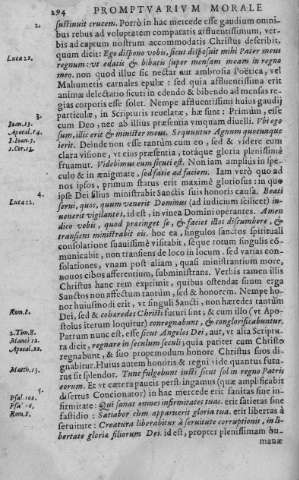 294 PROMPTVARIVM MORALE
sustinuit crucem. Porrò in hac mercede esse gaudium omni-
2. bus rebus ad voluptatem comparatis affluentissimum, ver-
bis ad captum nostrum accommodatis Christus describit,
Luca 22. quum dicit: Ego dispono vobis, sicut disposuit mihi Pater meus
regnum: vt edatis & bibatis super mensam meam in regno
meo. non quod illuc sic nectar aut ambrosia Poëtica, vel
Mahumetis carnales epulæ: sed quia affluentissima erit
animæ delectatio sicut in edendo & bibendo ad mensas re-
gias corporis esse solet. Nempe affluentissimi huius gaudij
3. particulæ, in Scripturis reuelatæ, hæ sunt: Primùm, esse
Ioan. 13. cum Deo, nec ab illius præsentia vmquam diuelli.
Apocal. 14. sum, illic erit & minister meus. Sequuntur Agnum quocunque
1. Ioan. 3. ierit. Deinde non esse tantùm cum eo, sed & videre eum
1. Cor. 13. clara visione, vt eius præsentia, totaque gloria plenissimè
fruamur. Videbimus eum sicuti est. Non iam ampliùs in specu-
lo & in ænigmate, sed facie ad faciem. Iam verò quo ad
nos ipsos, primum fratus erit maximè gloriosus in quo
4. ipse Dei filius ministrabit Sanctis suis honoris causa. Beati
Luca 12. serui, quos, quum venerit Dominus (ad iudicium scilicet) in-
uenerit vigilantes, id est, in vinea Domini operantes. Amen
dico vobis, quod præcinget se, & faciet illos discumbere, &
transiens ministrabit eis. hoc ea, singulos sanctos spirituali
consolatione suauissimè visitabit, séque totum singulis cõ-
municabit, non transiens de loco in locum. sed varias con-
solationes, vnam post aliam, quasi ministrantium more,
nouos cibos afferentium, subministrans. Verbis tamen illis
Christus hanc rem exprimit, quibus ostendat suum erga
Sanctos non affectum tantùm, sed & honorem. Nempe ho-
nor huiusmodi erit, vt singuli Sancti, non hæredes tantùm
Rom. 8. Dei, sed & cohæredes Christi futuri sint; & cum illo (vt Apo-
stolus iterum loquitur) conregnabunt, & conglorificabuntur.
2. Tim. 8. Patrum nunc est. esse sicut Angelos Dei, aut, vt alia Scriptu-
Mar. 12. ra dicit, regnare in seculum seculi; quia pariter cum Christo
Apocal. 22. regnabunt, & suo propemodum honore Christus suos di-
gnabitur. Huius autem honoris & regni vide quantus futu-
Matth. 13. rus sit splendor. Tunc fulgebunt iusti sicut sol in regno Patris
5. eorum. Et vt cætera paucis perstringamus (quæ amplificabit
disertus Concionator) in hac mercede erit sanitas sine in-
Psal. 102. firmitate: Qui sanat omnes infirmitates tuas. erit satietas sine
Psal. 16. fastidio: Satiabor cùm apparuerit gloria tua. erit libertas à
Rom. 8. seruitute: Creatura liberabitur à seruitute corruptionis, in li-
bertatem gloriæ filiorum Dei. id est, propter plenissimam hu-
manæ